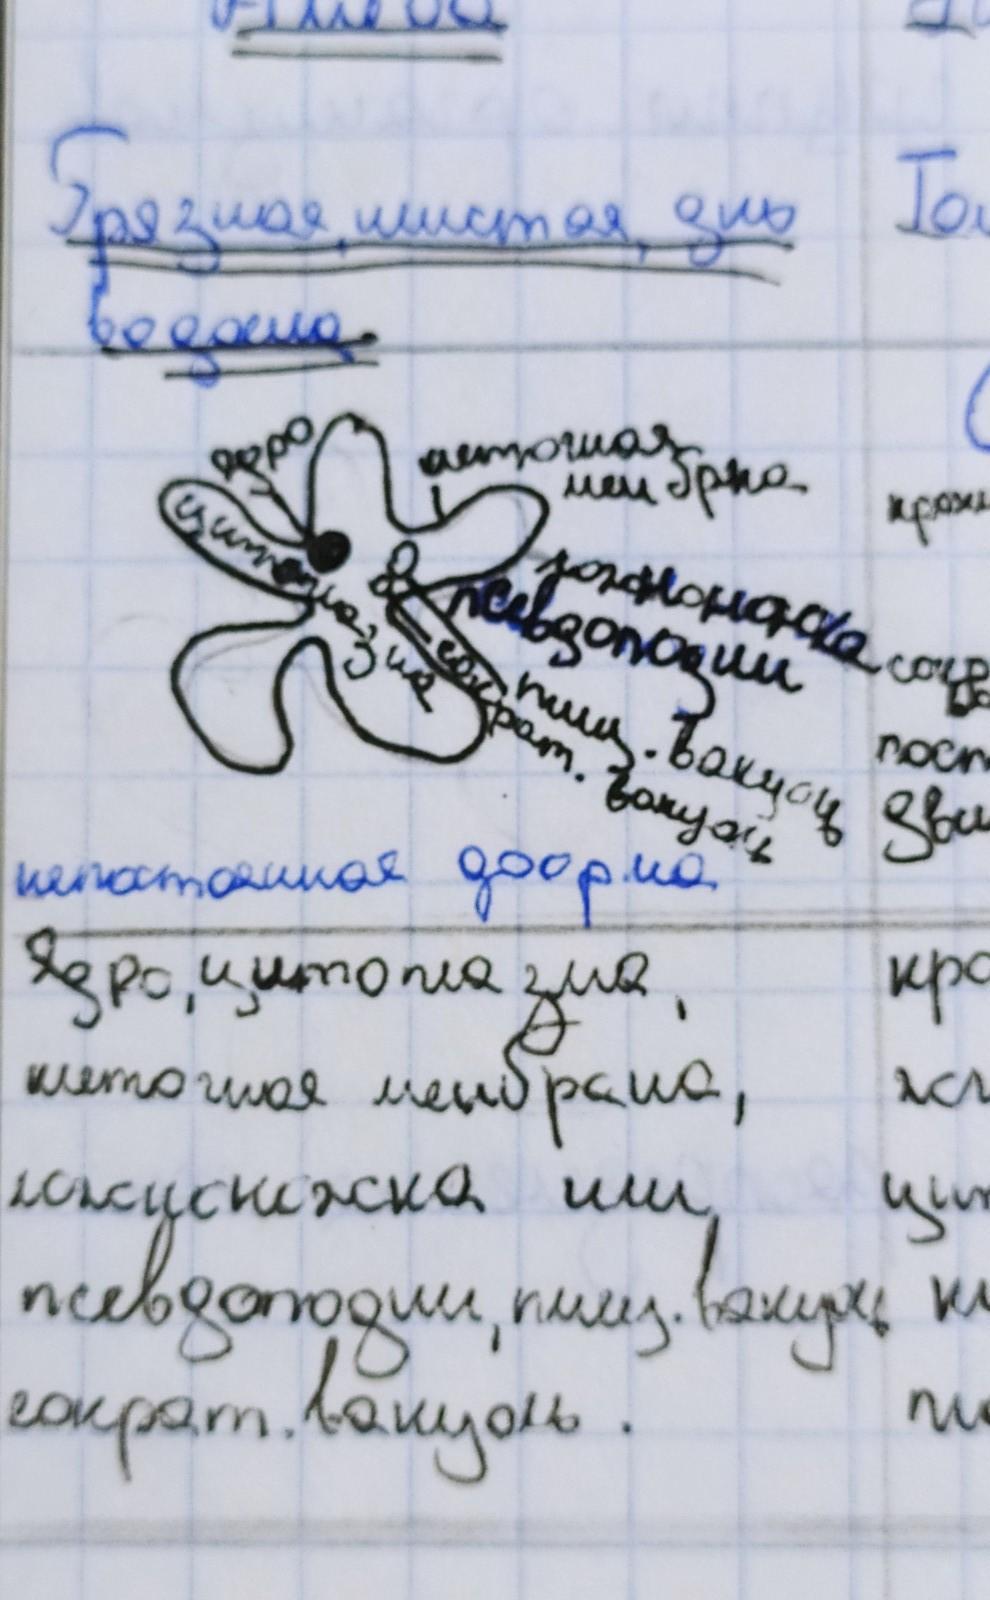 Амёба
Грязная, илистая, дно
водоёма
ядро
клеточная
мембрна
цитоплазма
ложноножка
псевдоподии
пищ. вакуоль
сократ. вакуоль
непостоянная форма
Ядро, цитоплазма,
клеточная мембрана,
или
псевдоподии, пищ. вакуоль
сократ. вакуоль.
сокр
пост
кро